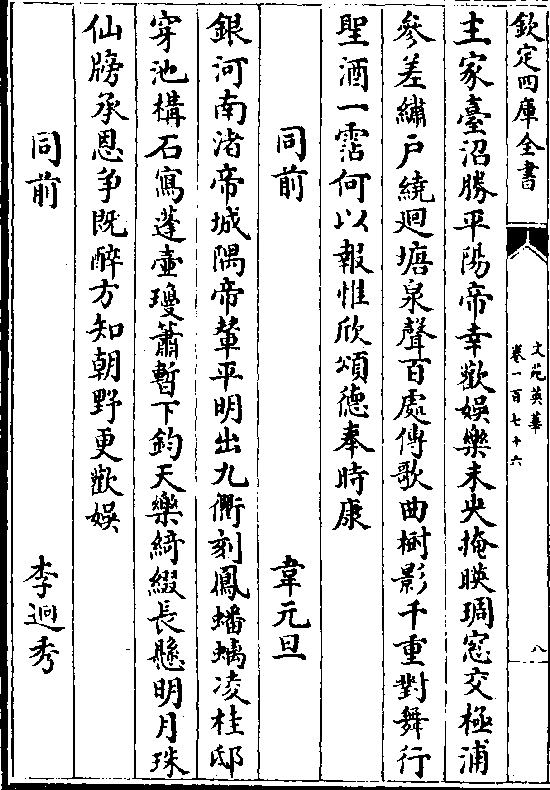 欽定四庫全書
文苑英華
卷一百七十六
八
主家臺沼勝平陽帝幸歡娛樂未央掩暎琱窓交極浦
參差繡戶繞廻塘泉聲百處傳歌曲樹影千重對舞行
聖酒一霑何以報惟欣頌德奉時康
同前 韋元旦
銀河南渚帝城隅帝輦平明出九衢刻鳳蟠螭凌桂邸
穿池構石寫蓬壺瓊簫暫下鈞天樂綺綴長懸明月珠
仙牓承恩爭既醉方知朝野更歡娛
同前 李迥秀